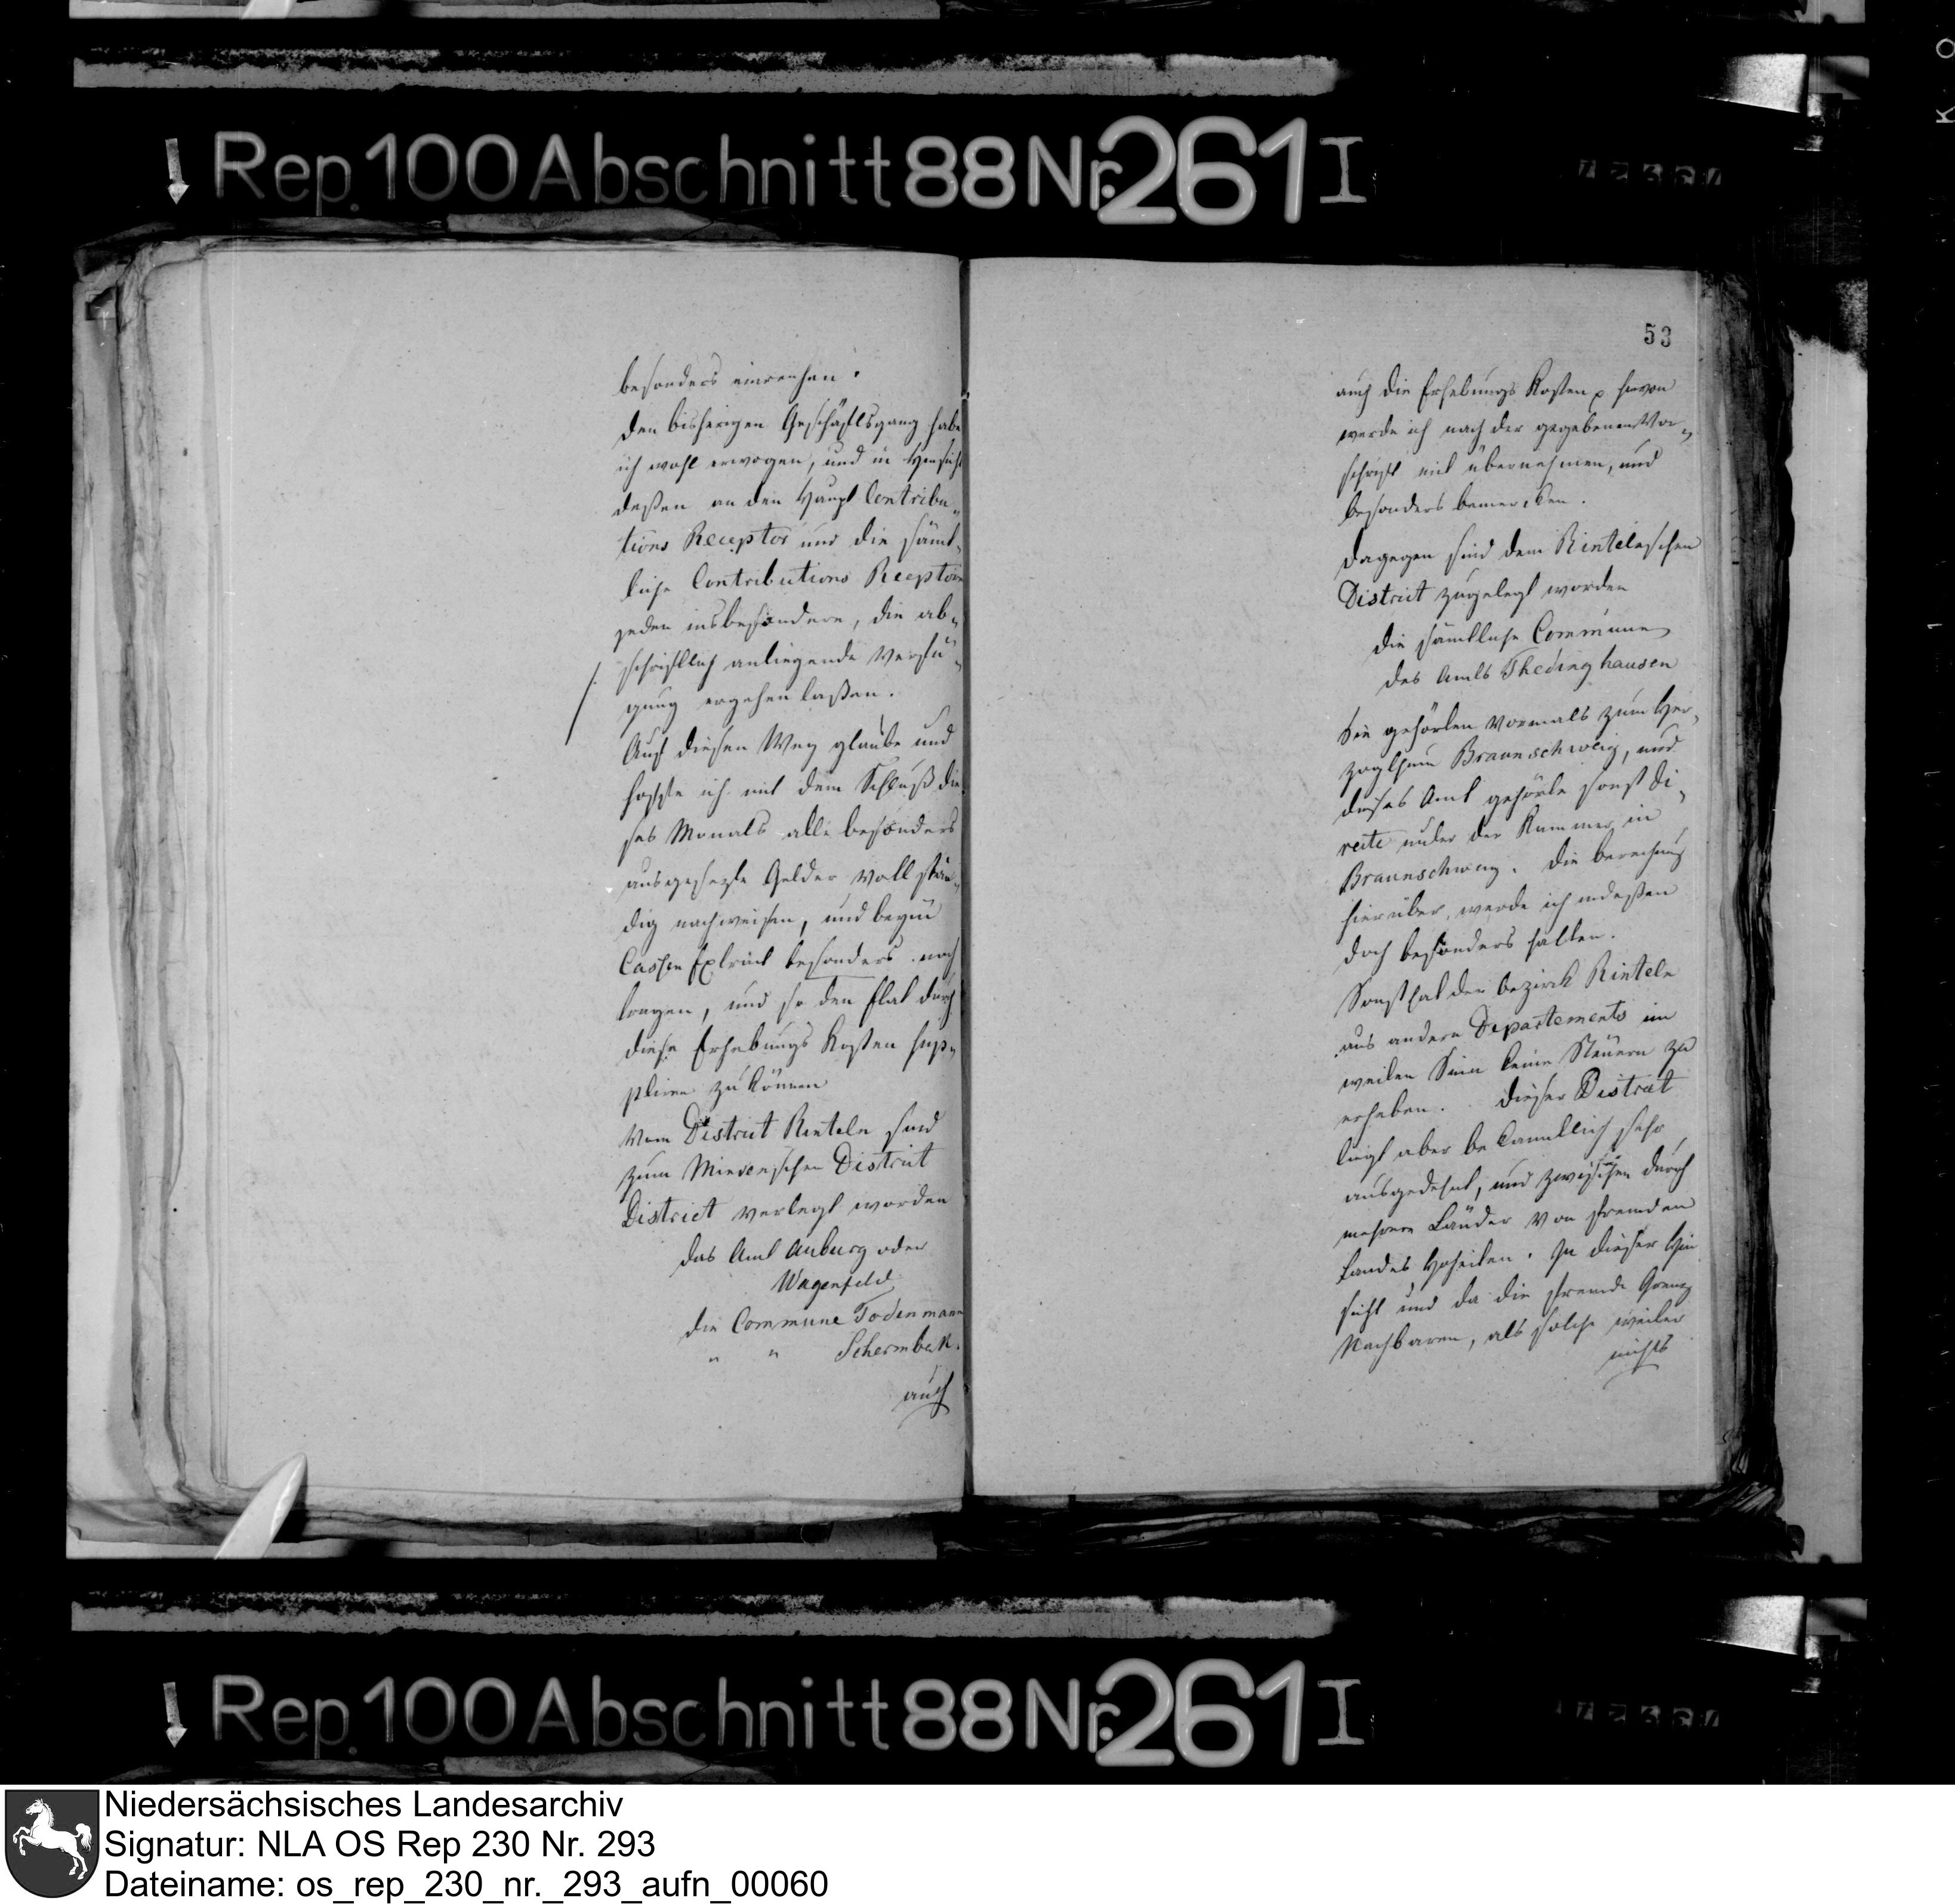 Rep. 100 Abschnitt 88 Nr. 261 I
besonders einreichen.
Den bisherigen Geschäftsgang habe
ich wohl erwogen, und in Hinsicht
deßen an den Haupt Contribu„
tions Receptor und die sämt„
liche Contributions Receptoren
jeden insbesondere, die ab„
schriftlich anliegende Verfü„
gung ergehen laßen.
Auf diesen Weg glaube und
hoffte ich mit dem Schluß die„
ses Monats alle besonders
ausgesezte Gelder vollstän„
dig nachweisen, und beym
Cassen Extract besonders nach
tragen, und so den Etat durch
diese Erhebungs Kosten sup„
pliren zu können
Vom District Rinteln sind
zum Mindenschen District
District verlegt worden
das Amt Auburg oder
Wagenfeld
die Commune Todenmann
" " Schermbeck.
auch
53
auch die Erhebungs Kosten hievon
werde ich nach der gegebenen Vor„
schrift mit übernehmen, und
besonders bemercken.
Dagegen sind dem Rintelnschen
District zugelegt worden
die sämtliche Communen
des Amts Thedinghausen
Sie gehörten vormals zum Her„
zogthum Braunschweig, und
dieses Amt gehörte sonst di„
recte unter der Kammer in
Braunschweig. Die berechnung
hierüber, werde ich indeßen
doch besonders halten.
Sonst hat der bezirck Rinteln
aus andern Departements im
weitern Sinn keine Steuern zu
erheben. Dieser District
liegt aber bekanntlich sehr
ausgedehnt, und zwischen durch
mehrere Länder von fremden
Landes Hoheiten. In dieser Hin
sicht und da die fremde Grenz
Nachbaren, als solche weiter
nichts
Rep. 100 Abschnitt 88 Nr. 261 I
Niedersächsisches Landesarchiv
Signatur: NLA OS Rep 230 Nr. 293
Dateiname: os_rep_230_nr._293_aufn_00060